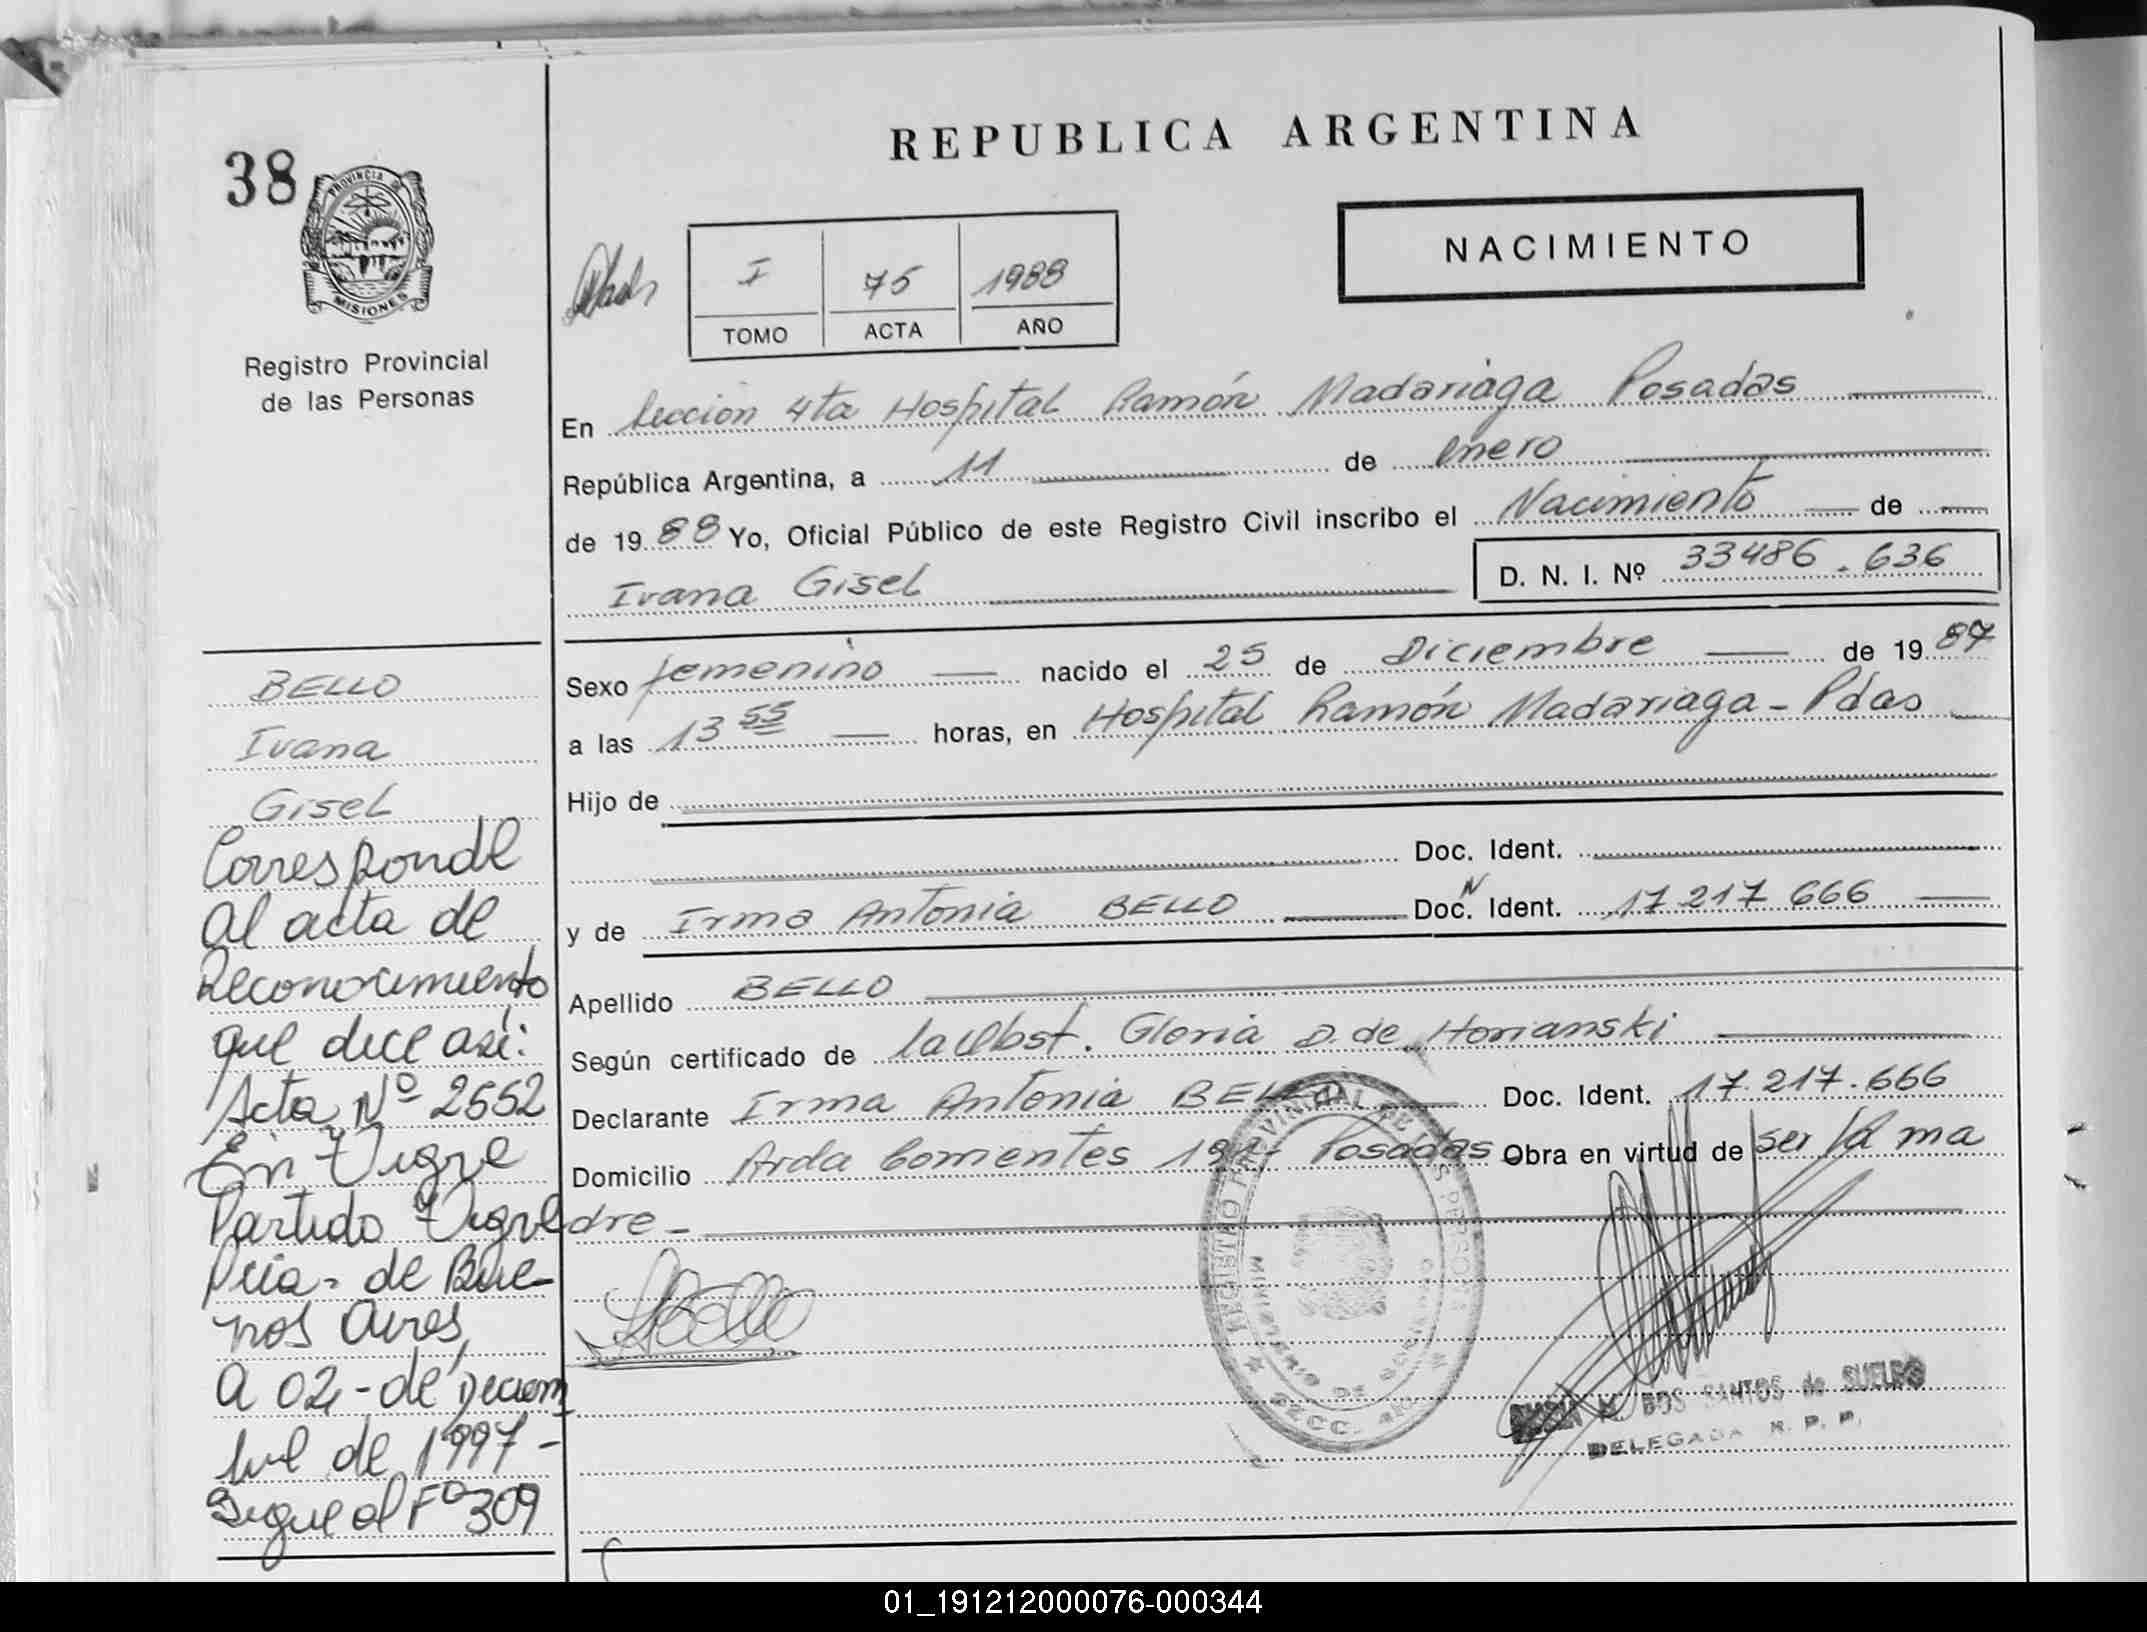 38
PROVINCIA DE
MISIONES
Registro Provincial
de las Personas
REPUBLICA ARGENTINA
NACIMIENTO
I 75 1988
TOMO ACTA AÑO
En Sección 4ta Hospital Ramón Madariaga Posadas
República Argentina, a 11 de Enero
de 1988 Yo, Oficial Público de este Registro Civil inscribo el Nacimiento de
Ivana Gisel D. N. I. Nº 33486.636
Sexo femenino nacido el 25 de Diciembre de 1987
a las 13 55 horas, en Hospital Ramón Madariaga - Pdas
Hijo de
Doc. Ident.
y de Irma Antonia BELLO Doc. N Ident. 17 217 666
Apellido BELLO
Según certificado de la Obst. Gloria D. de Horianski
Declarante Irma Antonia BELLO Doc. Ident. 17.217.666
Domicilio Avda Corrientes Posadas Obra en virtud de ser la ma
dre -
BELLO
Ivana
Gisel
Corresponde
al acta de
Reconocimiento
que dice así:
Acta Nº 2552
En Tigre
Partido Tigre
Pcia. de Bue-
nos Aires,
a 02 - de Diciem
bre de 1997 -
Sigue al Fº 309
REGISTRO PROVINCIAL DE LAS PERSONAS
MINISTERIO DE GOBIERNO
SECC. 4ta
M. DOS SANTOS de SUELDO
DELEGADA R. P. P.
01_191212000076-000344